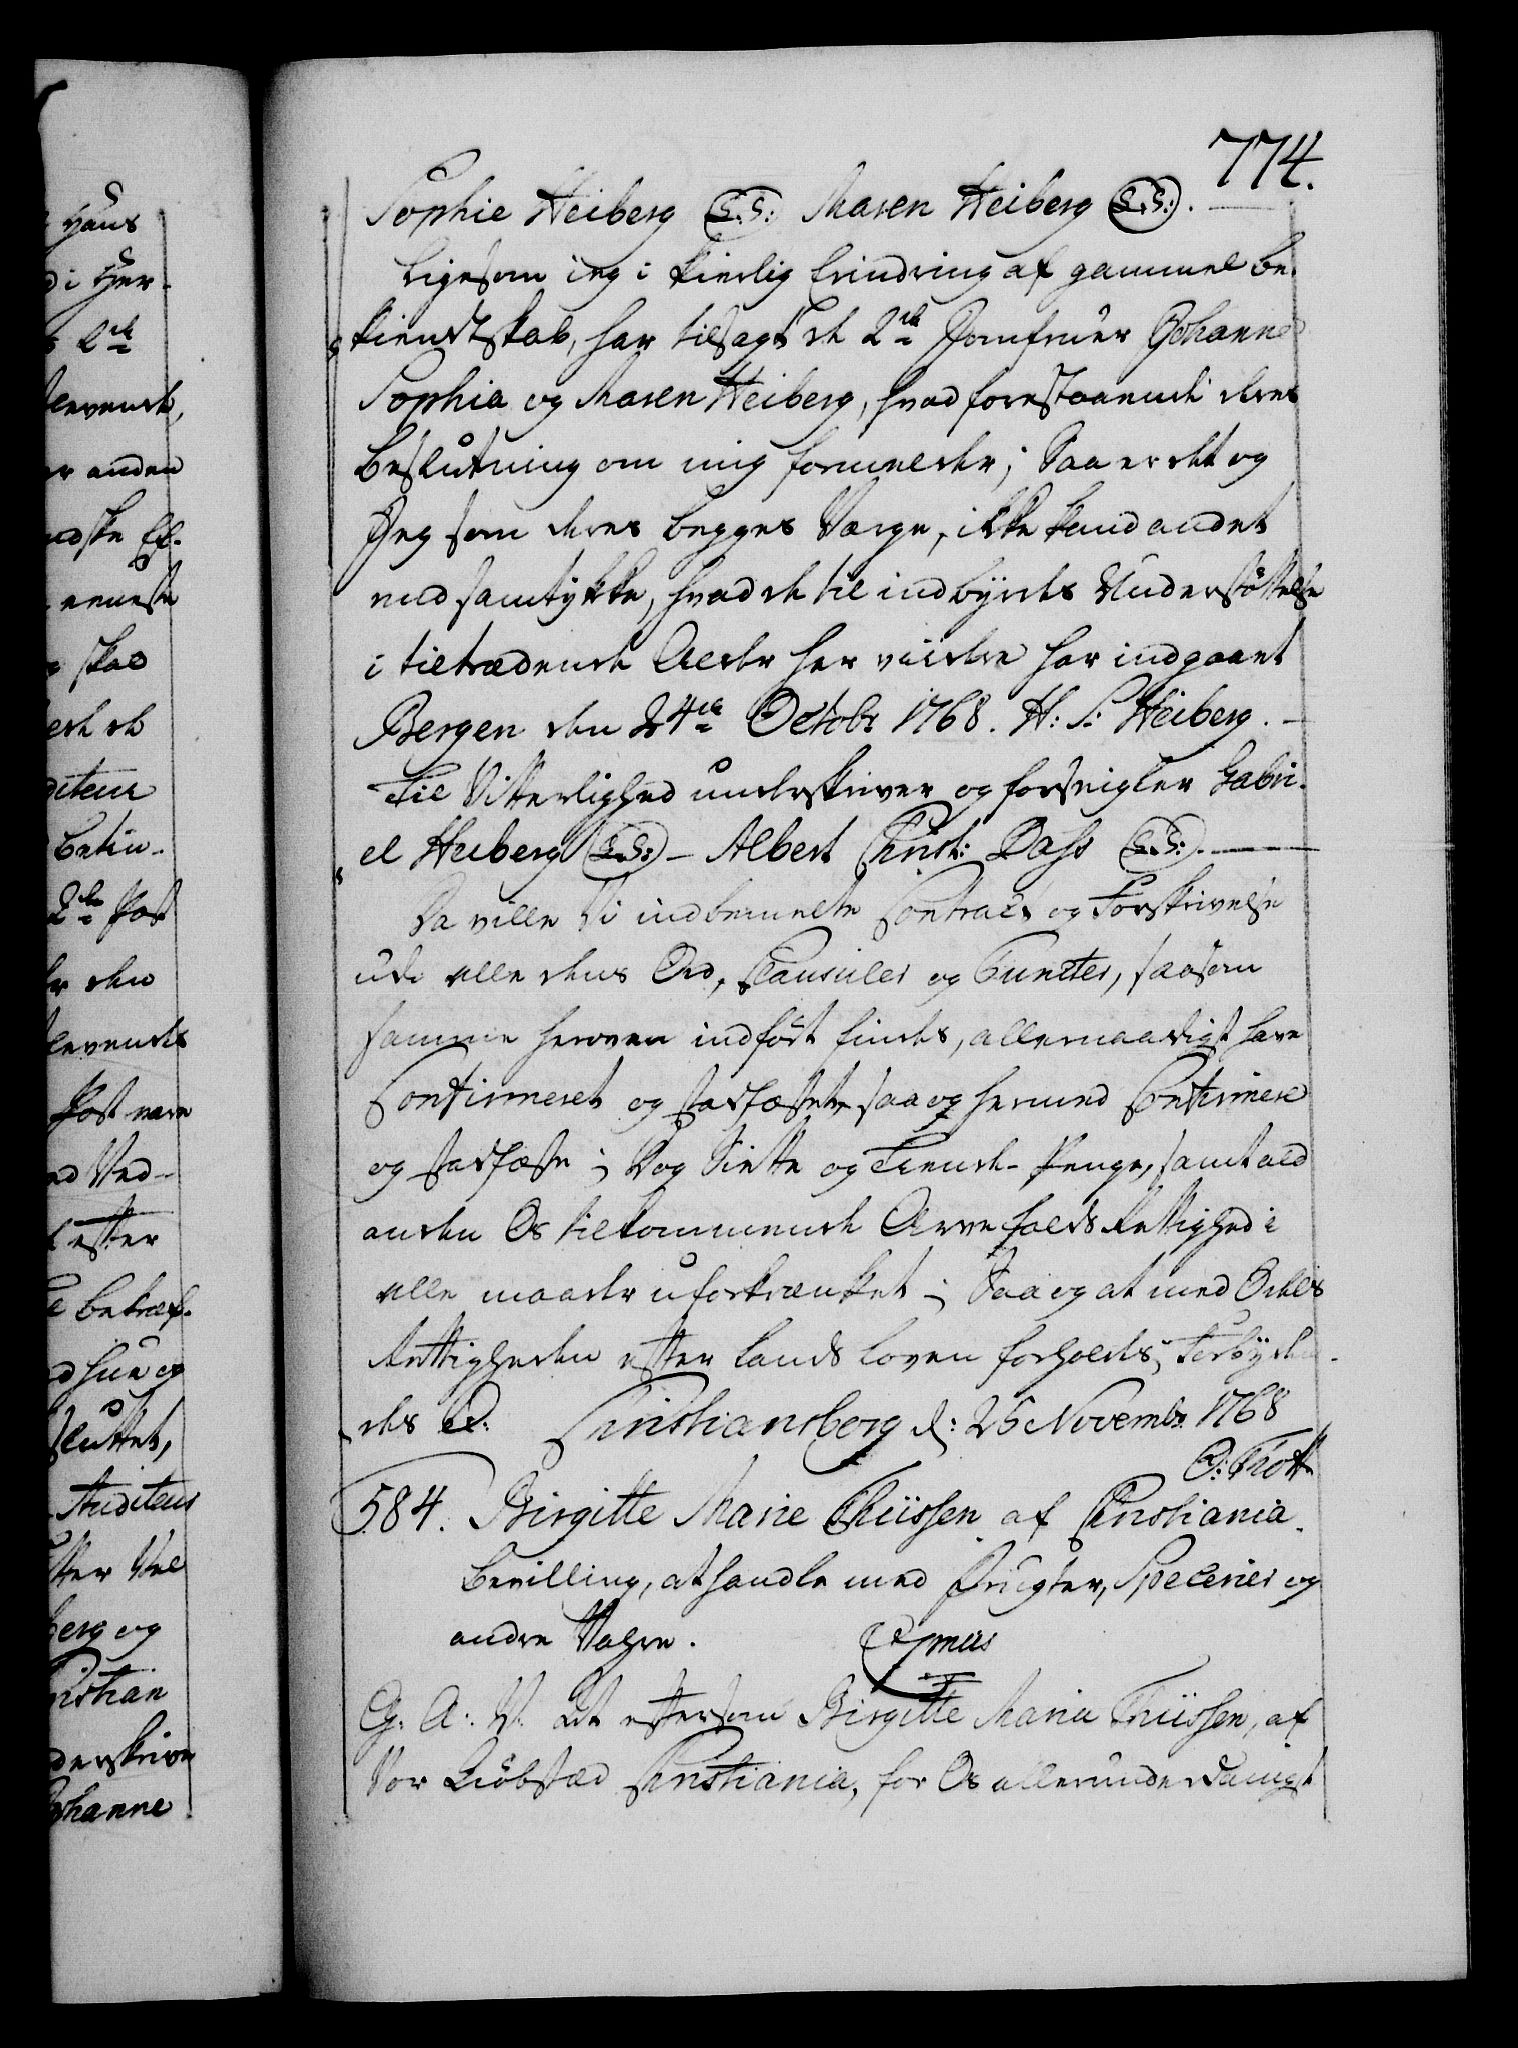 774.
Sophie Heiberg (L.S:) Maren Heiberg (L.S:).
Ligesom ieg i kierlig Erindring af gammel be-
kiendtskab, har tilsagt de 2de Jomfruer Johanne
Sophia og Maren Heiberg, hvad forestaaende deres
Beslutning om mig formelder; Saa er det og
Jeg som deres begges Værge, ikke kand andet
end samtykke, hvad de til indbyrdes Understøttelse
i tiltrædende Alder her videre har indgaaet
Bergen den 24de Octobr 1768. H: S: Heiberg.
Til Vitterlighed underskriver og forseigler Gabri-
el Heiberg (L.S:) – Albert Christ: Dass (L.S:).
Da ville Vi indbemelte Contract og Forskrivelse
udi alle dens Ord, Clausuler og Puncter, saasom
samme heroven indført findes, allernaadigst have
Confirmeret og stadfæstet, saa og hermed Confirmere
og stadfæste; Dog Siette og Tiende-Penge, samt ald
anden Os tilkommende Arvefalds Rettighed i
alle maader uforkrænket; Saa og at med Odels
Rettigheden efter Lands Loven forholdes; Forbyden-
des &: Christiansborg d: 25 Novembr 1768
O: Thott
584. Birgitte Marie Thiissen af Christiania
Bevilling, at handle med Frugter, Specerier og
andre Vahre.
G: A: V: At eftersom Birgitte Maria Thiissen, af
Vor Kiöbstæd Christiania, for Os allerunderdanigst
Haus
2de
levende,
er anden
skal
Betin-
2de Post
levendes
Post være
efter
Betræf-
sluttet,
Auditeur
berg og
ristian
derskriver
Johanne